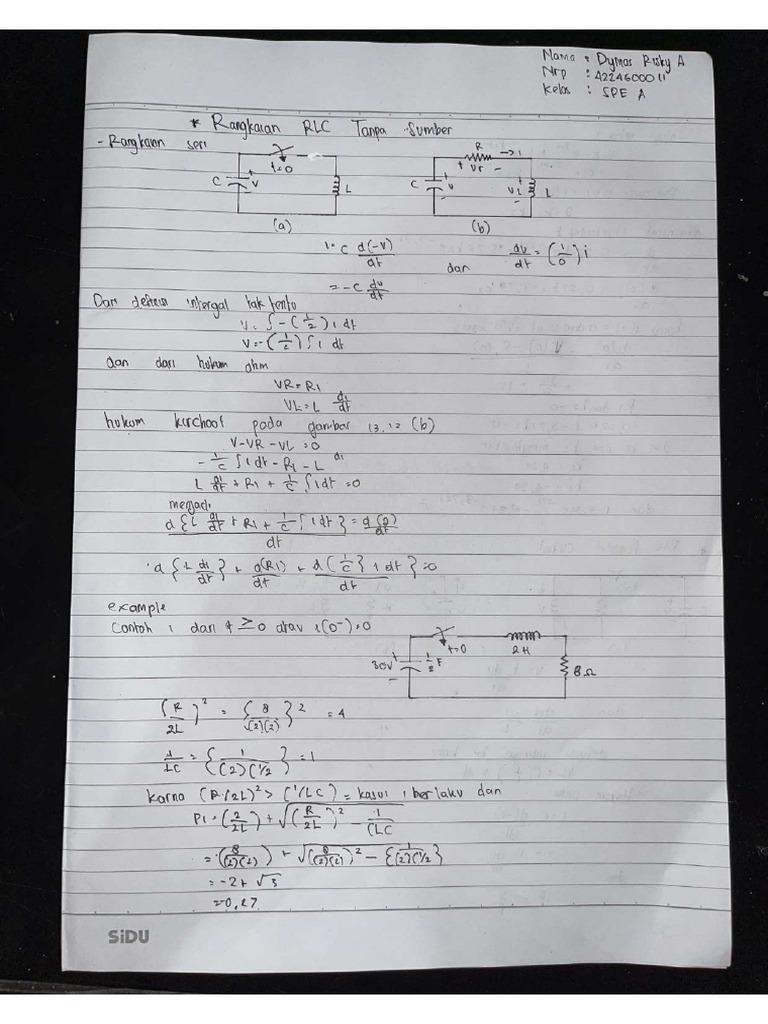 Nama : Dymas Risky A
Nrp : 4224600011
Kelas : SPE A
* Rangkaian RLC Tanpa Sumber
- Rangkaian seri
C + V - t=0 L
(a)
C + V - R + VR - → i + VL - L
(b)
i = C d(-V)/dt dan dv/dt = (1/0) i
= -C dv/dt
Dari definisi intergal tak tentu
V = ∫ - (1/2) i dt
V = - (1/c) ∫ i dt
dan dari hukum ohm
VR = Ri
VL = L di/dt
hukum kirchoof pada gambar 13.12 (b)
V - VR - VL = 0
- 1/c ∫ i dt - Ri - L di
L di/dt + Ri + 1/c ∫ i dt = 0
menjadi
d { L di/dt + Ri + 1/c ∫ i dt } / dt = d(0)/dt
d { L di/dt } + d(Ri)/dt + d { 1/c } i dt } / dt = 0
example
Contoh i dari t ≥ 0 atau i(0⁻) = 0
30V + - 1/2 F t=0 2 H 8 Ω
(R/2L)² = { 8/√(2)(2) }² = 4
1/LC = { 1/(2)(1/2) } = 1
karna (R/2L)² > (1/LC) = kasus i berlaku dan
P1 = (2/2L) + √(R/2L)² - 1/(LC
= (8/(2)(2)) + √(8/(2)(2))² - { 1/(2)(1/2 }
= -2 + √3
= 0,27
SiDU